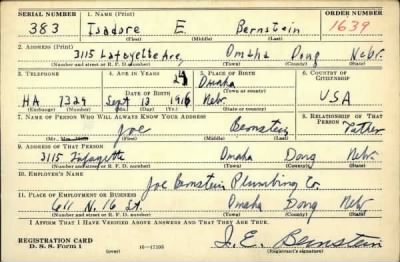 SERIAL NUMBER 1. NAME (Print) ORDER NUMBER
383 Isadore E. Bernstein 1639
(First) (Middle) (Last)
2. ADDRESS (Print)
3115 Lafayette Ave, Omaha Doug Nebr.
(Number and street or R. F. D. number) (Town) (County) (State)
3. TELEPHONE 4. AGE IN YEARS 5. PLACE OF BIRTH 6. COUNTRY OF CITIZENSHIP
24 Omaha
DATE OF BIRTH (Town or county)
HA 7324 Sept 13 1916 Nebr. USA
(Exchange) (Number) (Mo.) (Day) (Yr.) (State or country)
7. NAME OF PERSON WHO WILL ALWAYS KNOW YOUR ADDRESS 8. RELATIONSHIP OF THAT PERSON
Joe Bernstein Father
(Mr., Mrs., Miss) (First) (Middle) (Last)
9. ADDRESS OF THAT PERSON
3115 Lafayette Omaha Doug Nebr.
(Number and street or R. F. D. number) (Town) (County) (State)
10. EMPLOYER'S NAME
Joe Bernstein Plumbing Co.
11. PLACE OF EMPLOYMENT OR BUSINESS
611 N. 16 St. Omaha Doug Nebr
(Number and street or R. F. D. number) (Town) (County) (State)
I AFFIRM THAT I HAVE VERIFIED ABOVE ANSWERS AND THAT THEY ARE TRUE.
REGISTRATION CARD
D. S. S. Form 1 (over) 16—17105 I. E. Bernstein
(Registrant's signature)